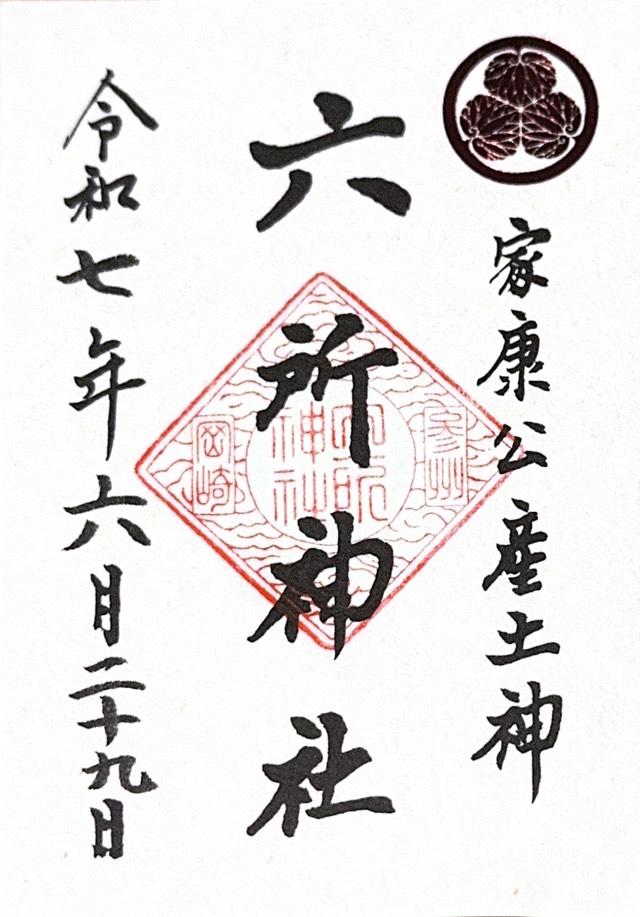 家康公産土神
六所神社
令和七年六月二十九日
参州
六所
神社
岡崎